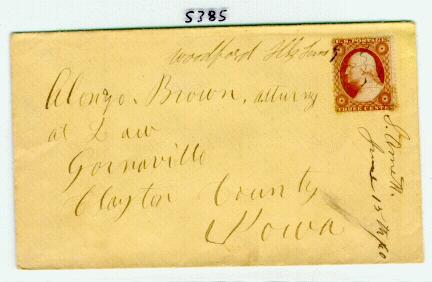 5385
Woodford Ills June 9
U.S. POSTAGE
THREE CENTS
Alonzo Brown, atturny
at Law
Gornaville
Clayton County
Iowa
June 13th /60